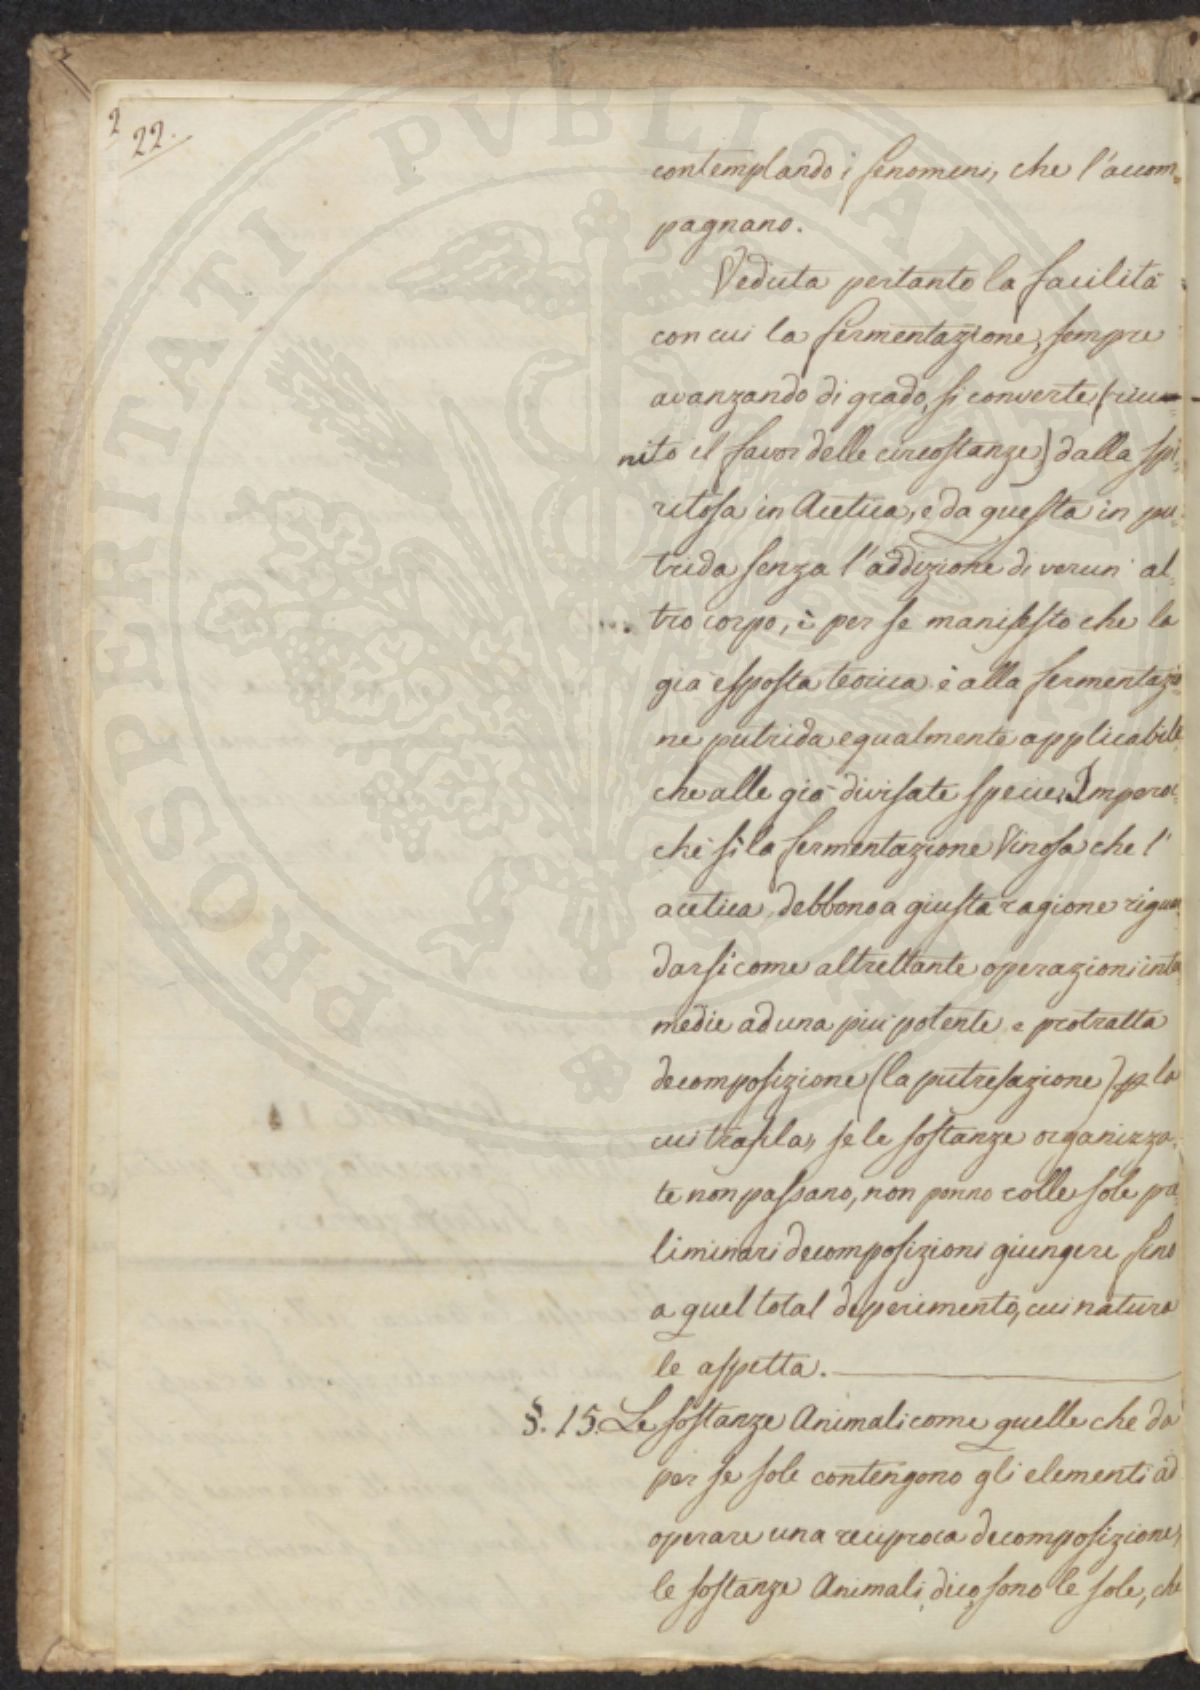 2
22.
contemplando i fenomeni, che l'accom-
pagnano.
Veduta pertanto la facilità
con cui la fermentazione, sempre
avanzando di grado, si converte (riu-
nito il favor delle circostanze) dalla spi-
ritosa in Acetica, e da questa in pu-
trida senza l'addizione di verun' al-
tro corpo, è per se manifesto che la
già esposta teorica è alla fermentazio-
ne putrida egualmente applicabile
che alle già divisate specie. Imperoc-
chè sì la fermentazione Vinosa che l'
acetica debbono a giusta ragione riguar-
darsi come altrettante operazioni inter-
medie ad una più potente e protratta
decomposizione (la putrefazione) p la
cui trafila, se le sostanze organizza-
te non passano, non ponno colle sole pre-
liminari decomposizioni giungere fino
a quel total deperimento, cui natura
le aspetta.
§. 15. Le sostanze Animali come quelle che da
per se sole contengono gli elementi ad
operare una reciproca decomposizione,
le sostanze Animali, dico, sono le sole, che
PROSPERITATI PVBLICAE